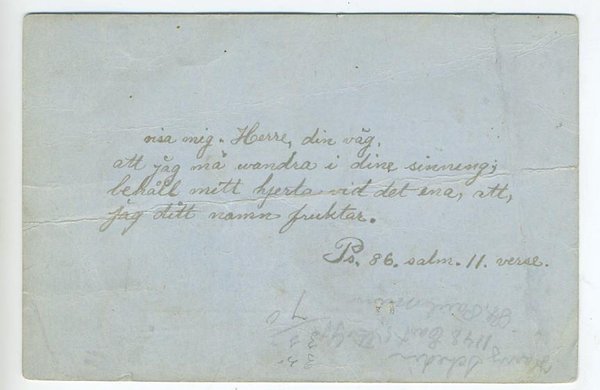 visa mig. Herre, din väg,
att jåg må wandra i dine sinneng;
behåll mett hjerta vid det ena, att,
jåg ditt namn fruktar.
Ps. 86. salm. 11. verse.
1148